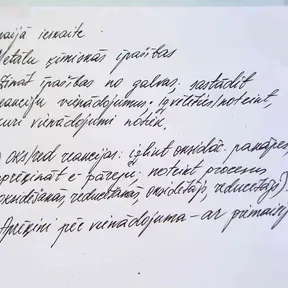 naijā ieskaite
Metālu ķīmiskās īpašības
Zināt īpašības no galvas, sastādīt
reakciju vienādojumus. Izvēlēties/noteikt,
kuri vienādojumi notiek.
) oks/red reakcijas: izlikt oksidāc. pakāpes,
uzrakstāt e⁻ pāreju, noteikt procesus
oksidēšanās, reducēšanās, oksidētājs, reducētājs)
Aprēķini pēc vienādojuma - ar piemaisīj